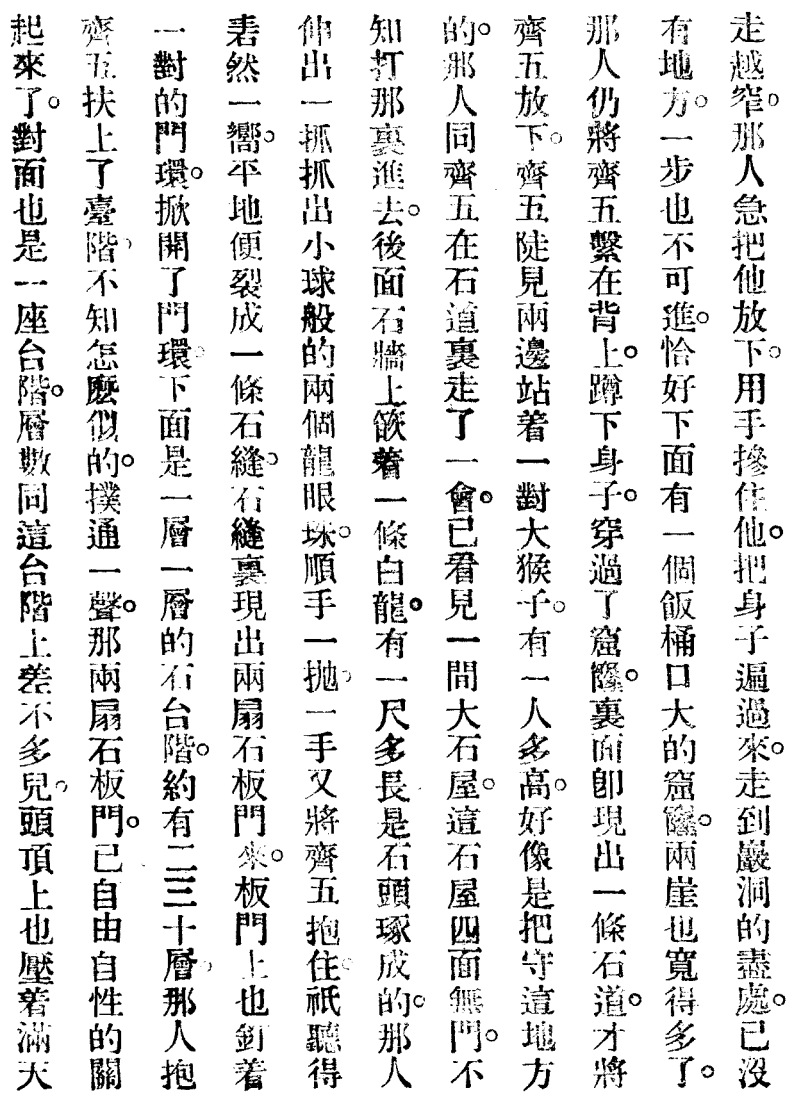 走越窄。那人急把他放下。用手搀住他。把身子逼過來。走到巖洞的盡處。已沒
有地方。一步也不可進。恰好下面有一個飯桶口大的窟窿。兩崖也寬得多了。
那人仍將齊五繫在背上。蹲下身子。穿過了窟窿。裏面卽現出一條石道。才將
齊五放下。齊五陡見兩邊站着一對大猴子。有一人多高。好像是把守這地方
的。那人同齊五在石道裏走了一會。已看見一間大石屋。這石屋四面無門。不
知打那裏進去。後面石牆上嵌着一條白龍。有一尺多長。是石頭琢成的。那人
伸出一抓抓出小球般的兩個龍眼珠。順手一拋。一手又將齊五抱住。祇聽得
砉然一嚮。平地便裂成一條石縫。石縫裏現出兩扇石板門來。板門上也釘着
一對的門環。掀開了門環。下面是一層一層的石台階。約有二三十層。那人抱
齊五扶上了臺階。不知怎麼似的。撲通一聲。那兩扇石板門。已自由自性的關
起來了。對面也是一座台階。層數同這台階上差不多兒。頭頂上也壓着滿天